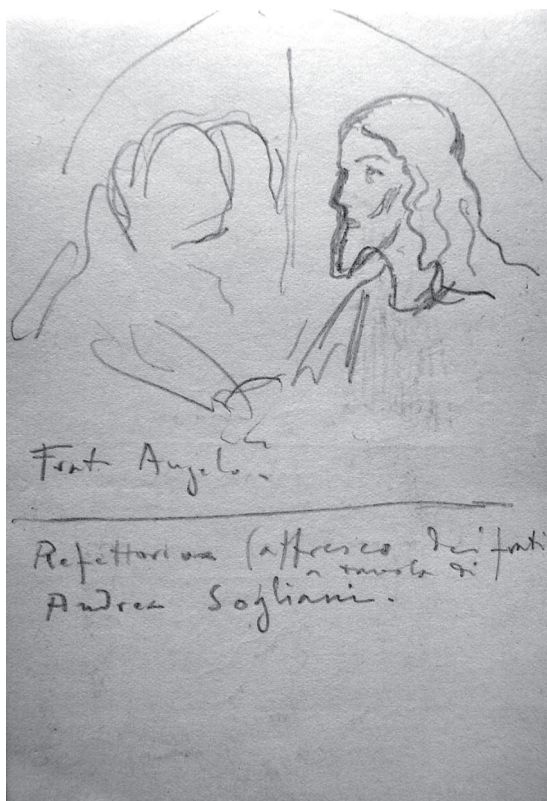 Frat Angelo.
Refettorium (affresco dei frati
a tavola di
Andrea Sogliani.